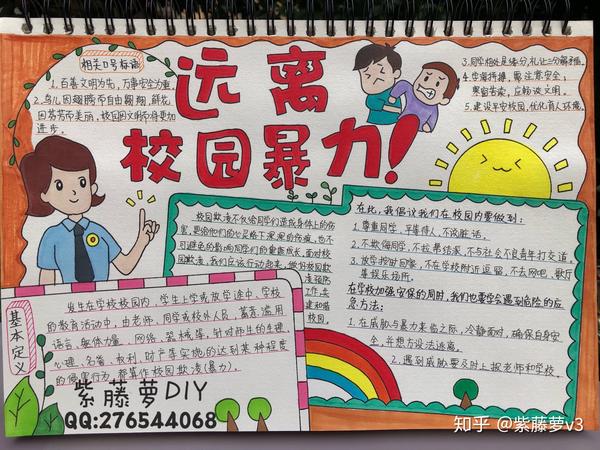 远离
校园暴力!
相关口号标语
1.百善文明为先,万事安全为重。
2.鸟儿因翅膀而自由翱翔,鲜花
因芬芳而美丽,校园因文明而将更加
进步。
3.同学相处是缘分,礼让三分解矛盾。
5.建设平安校园,优化育人环境。
校园欺凌不仅给同学们造成身体上的伤
害,更给他们的心灵烙下深深的伤疤,也不
可避免的影响同学们的健康成长,面对校
园欺凌,我们应该行动起来,做好校园欺
凌预防
工作,共
建和谐
校园。
在此,我倡议我们在校园内要做到:
1.尊重同学,平等待人,不说脏话。
2.不欺侮同学,不拉帮结派,不与社会不良青年打交道。
3.放学按时回家,不在学校附近逗留,不去网吧、歌厅
等娱乐场所。
在学校加强安保的同时,我们也要学会遇到危险的应
急方法:
1.在威胁与暴力来临之际,冷静面对,确保自身安
全,并想方设法逃离。
2.遇到威胁要及时上报老师和学校。
基本定义
发生在学校校园内、学生上学或放学途中、学校
的教育活动中,由老师、同学或校外人员,蓄意滥用
语言、躯体力量、网络、器械等,针对师生的生理、
心理、名誉、权利、财产等实施的达到某种程度
的侵害行为,都算作校园欺凌(暴力)。
紫藤萝DIY
QQ:276544068
知乎 @紫藤萝v3